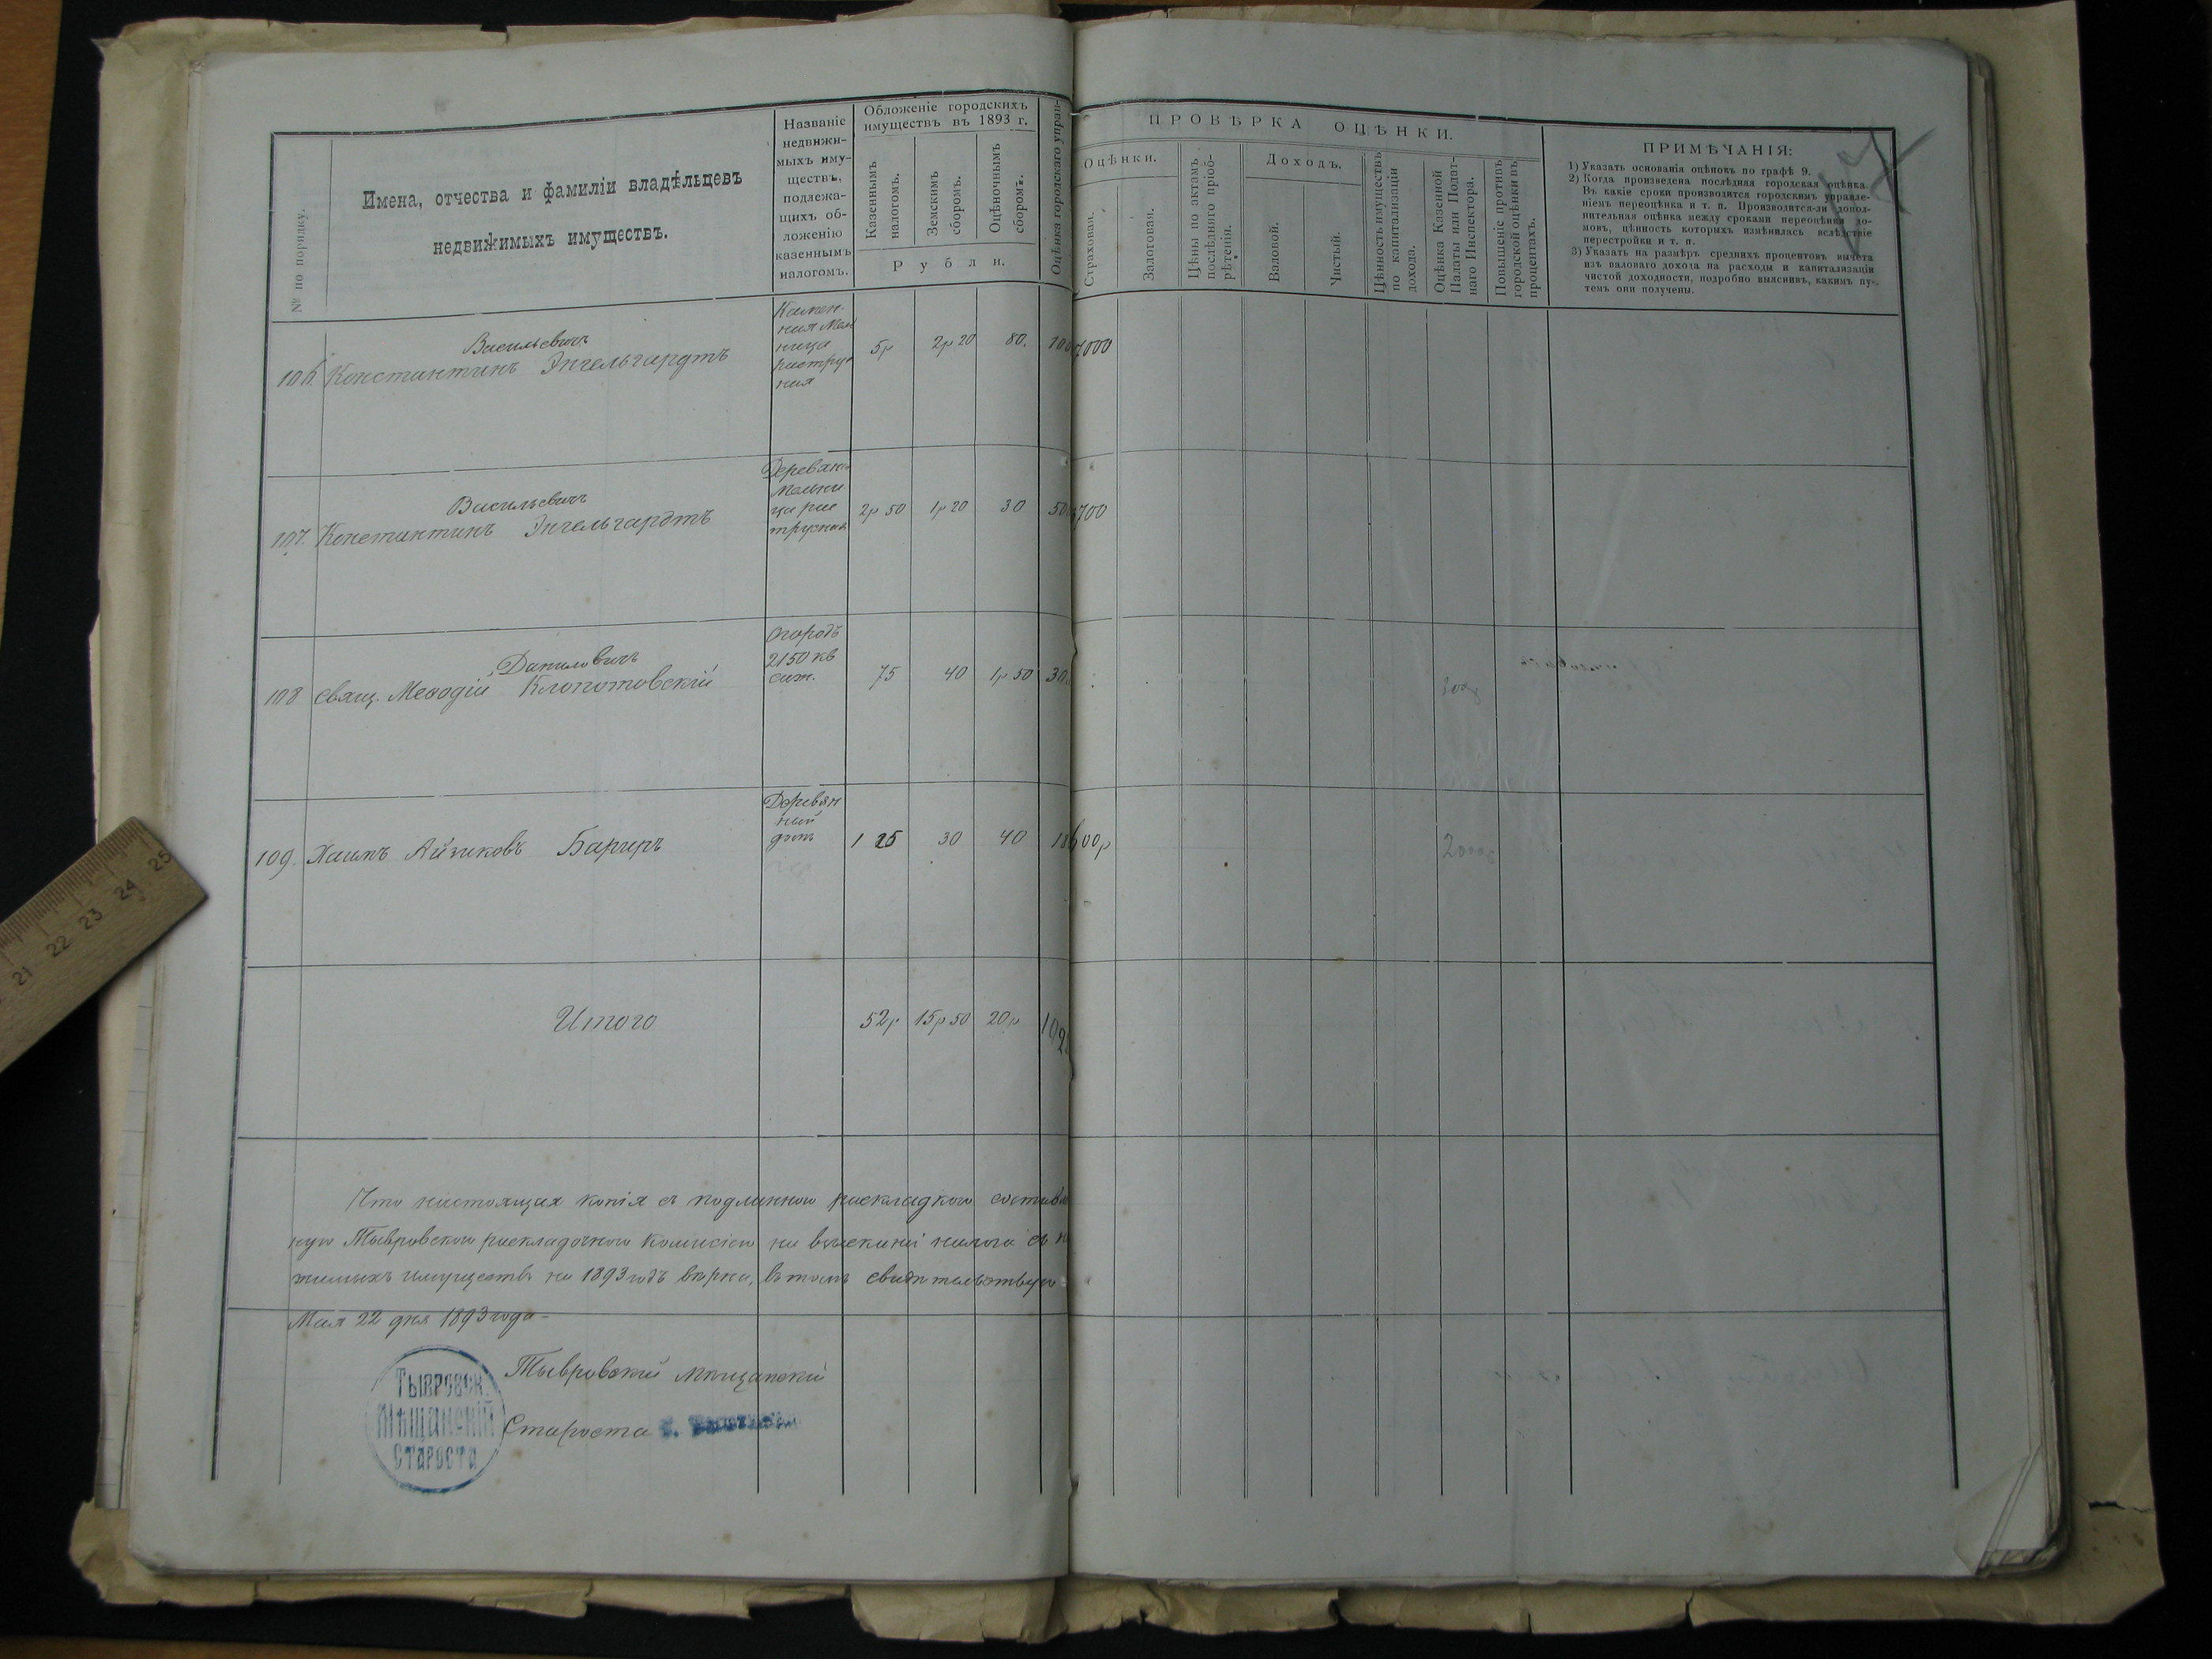 № по порядку.
Имена, отчества и фамиліи владѣльцевъ
недвижимыхъ имуществъ.
Названіе
недвижи-
мыхъ иму-
ществъ,
подлежа-
щихъ об-
ложенію
казеннымъ
налогомъ.
Обложеніе городскихъ
имуществъ въ 1893 г.
Казеннымъ
налогомъ.
Земскимъ
сборомъ.
Оцѣночнымъ
сборомъ.
Рубли.
Оцѣнка городского управ-
ПРОВѢРКА ОЦѢНКИ.
Оцѣнки.
Страховая.
Залоговая.
Цѣны по актамъ
послѣдняго пріоб-
рѣтенія.
Доходъ.
Валовой.
Чистый.
Цѣнность имуществъ
по капитализаціи
дохода.
Оцѣнка Казенной
Палаты или Подат-
наго Инспектора.
Повышеніе противъ
городской оцѣнки въ
процентахъ.
ПРИМѢЧАНІЯ:
1) Указать основанія оцѣнокъ по графѣ 9.
2) Когда произведена послѣдняя городская оцѣнка.
Въ какіе сроки производится городскимъ управле-
ніемъ переоцѣнка и т. п. Производится-ли допол-
нительная оцѣнка между сроками переоцѣнки до-
мовъ, цѣнность которыхъ измѣнилась вслѣдствіе
перестройки и т. п.
3) Указать на размѣръ среднихъ процентовъ вычета
изъ валоваго дохода на расходы и капитализаціи
чистой доходности, подробно выяснивъ, какимъ пу-
темъ они получены.
Васильевичъ
106 Константинъ Энгельгардтъ
5р 2р 20 80. 7000
Васильевичъ
107. Константинъ Энгельгардтъ
2р 50 1р 20 30 50 700
Даниловичъ
108 Свящ. Меѳодій Клопотовскій
огородъ
2150 кв
саж.
75 40 1р 50 30
300
109. Хаимъ Айзиковъ Баргеръ
Деревян
ный
домъ
1 25 30 40 18 600р
2000
Итого 52р 15р 50 20р 102
Что настоящая копія съ подлинною раскладкою составлен
ную Тывровскою раскладочною Комисіею на взысканіе налога съ
жимыхъ имуществъ на 1893 годъ вѣрна, въ томъ свидѣтельствую
Мая 22 дня 1893 года -
Тывровскій мѣщанскій
Староста
Тывровск.
Мѣщанскій
Староста
21 22 23 24 25